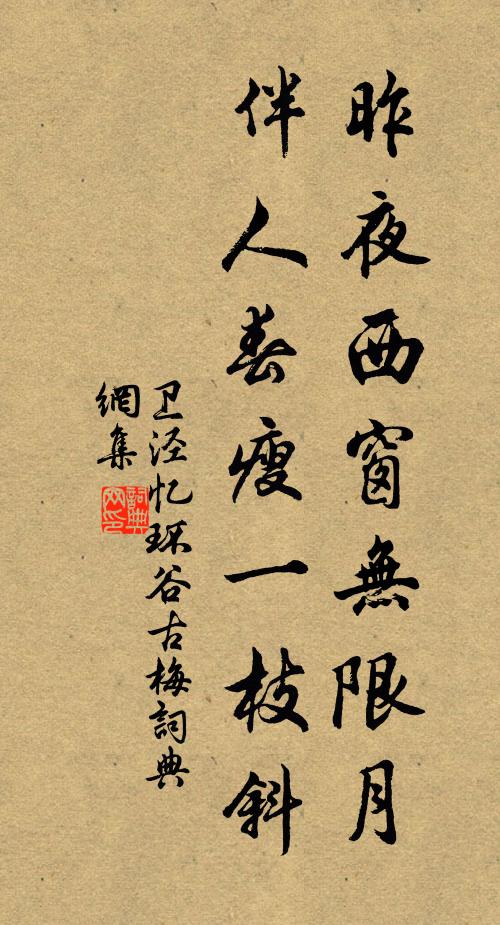 昨夜西窗無限月
伴人春瘦一枝斜
卫泾忆环谷古梅詞典
網集
詞典網印